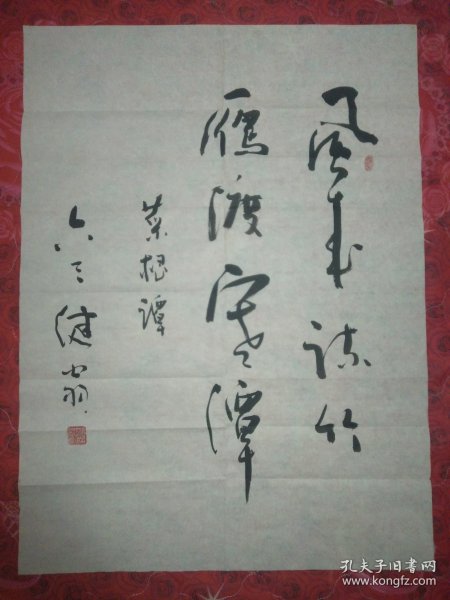 風来疏竹
雁渡寒潭
菜根譚
六三健翁
孔夫子旧书网
www.kongfz.com